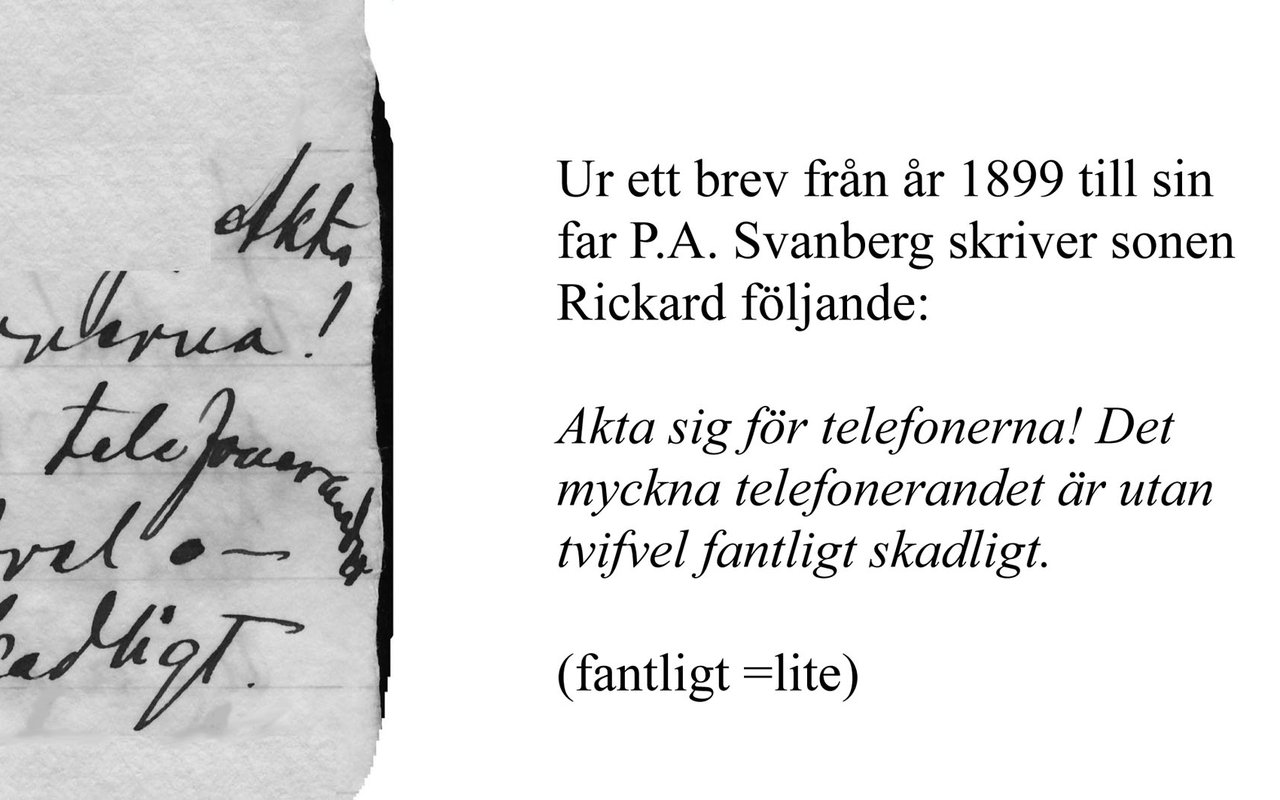 Akta
nerna!
telefonerandet
vel o—
kadligt.
Ur ett brev från år 1899 till sin
far P.A. Svanberg skriver sonen
Rickard följande:
Akta sig för telefonerna! Det
myckna telefonerandet är utan
tvifvel fantligt skadligt.
(fantligt =lite)